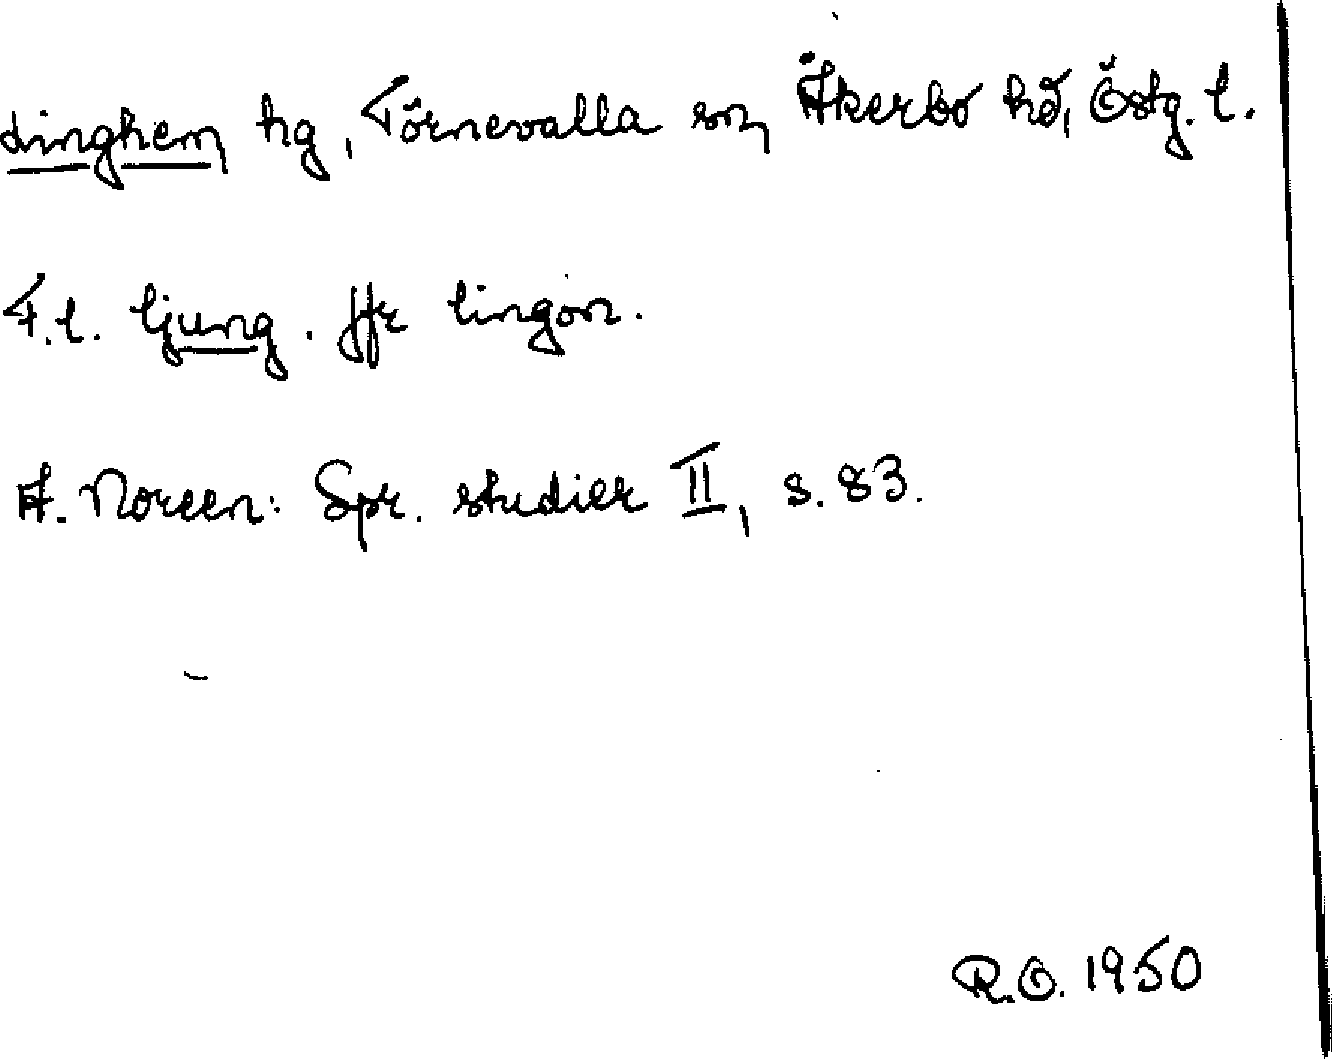 Linghem, hg, Törnevalla sn, Åkerbo hd, Östg. l.
F.l. ljung. Jfr lingon.
A. Noreen: Spr. studier II, s. 83.
R.O. 1950